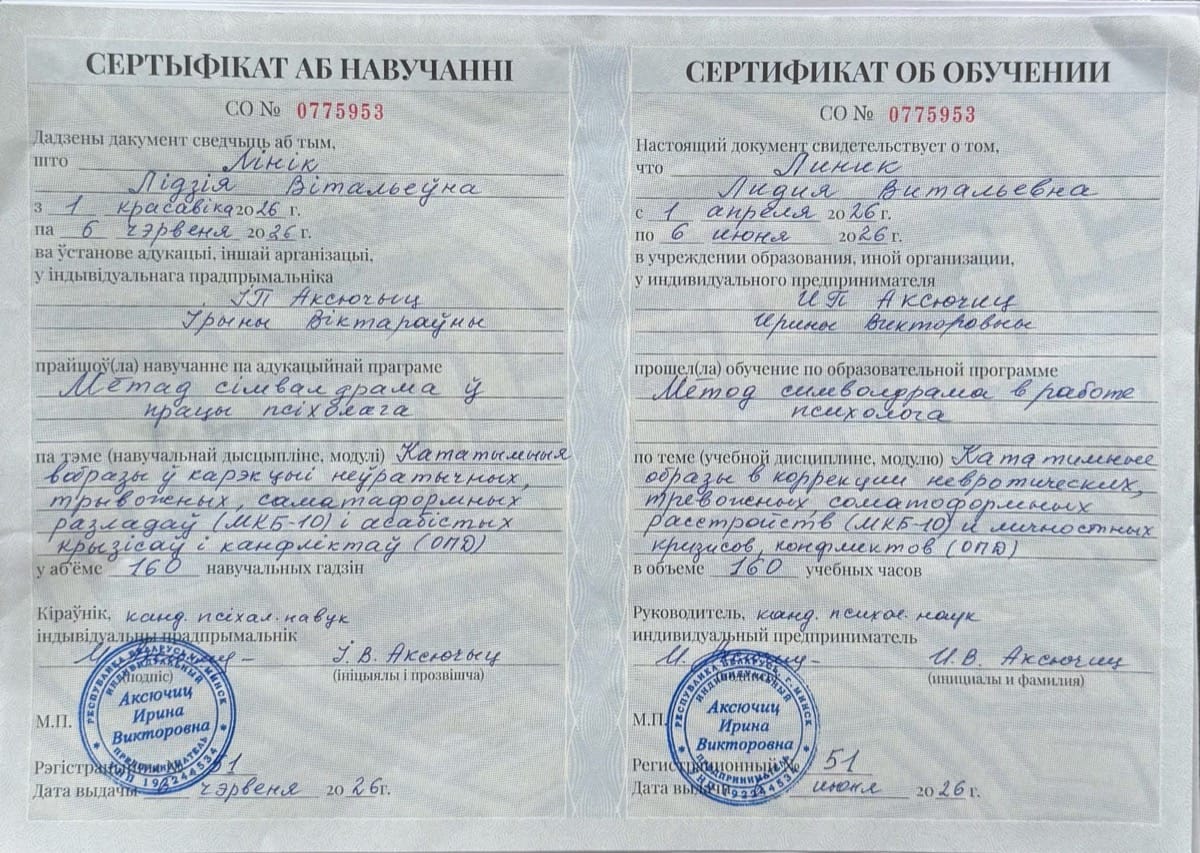 СЕРТЫФІКАТ АБ НАВУЧАННІ
СО № 0775953
Дадзены дакумент сведчыць аб тым,
што Лінік
Лідзія Вітальеўна
з 1 красавіка 2026 г.
па 6 чэрвеня 2026 г.
ва ўстанове адукацыі, іншай арганізацыі,
у індывідуальнага прадпрымальніка
ІП Аксючыц
Ірыны Віктараўны
прайшоў(ла) навучанне па адукацыйнай праграме
Метад сімвалдрама ў
працы псіхолага
па тэме (навучальнай дысцыпліне, модулі) Кататымныя
вобразы ў карэкцыі неўратычных,
трывожных, саматаформных
разладаў (МКБ-10) і асабістых
крызісаў і канфліктаў (ОПД)
у аб'ёме 160 навучальных гадзін
Кіраўнік, канд. псіхал. навук
індывідуальны прадпрымальнік
І. В. Аксючыц
(подпіс) (ініцыялы і прозвішча)
РЕСПУБЛИКА БЕЛАРУСЬ г. МИНСК
ИНДИВИДУАЛЬНЫЙ
Аксючиц
Ирина
Викторовна
ПРЕДПРИНИМАТЕЛЬ
М.П.
51
Дата выдачы 6 чэрвеня 2026г.
СЕРТИФИКАТ ОБ ОБУЧЕНИИ
СО № 0775953
Настоящий документ свидетельствует о том,
что Линик
Лидия Витальевна
с 1 апреля 2026 г.
по 6 июня 2026 г.
в учреждении образования, иной организации,
у индивидуального предпринимателя
ИП Аксючиц
Ирины Викторовны
прошел(ла) обучение по образовательной программе
Метод символдрама в работе
психолога
по теме (учебной дисциплине, модулю) Кататимные
образы в коррекции невротических,
тревожных, соматоформных
расстройств (МКБ-10) и личностных
кризисов, конфликтов (ОПД)
в объеме 160 учебных часов
Руководитель, канд. психол. наук
индивидуальный предприниматель
И. В. Аксючиц
(инициалы и фамилия)
РЕСПУБЛИКА БЕЛАРУСЬ г. МИНСК
ИНДИВИДУАЛЬНЫЙ
Аксючиц
Ирина
Викторовна
ПРЕДПРИНИМАТЕЛЬ
М.П.
Регистрационный № 51
Дата выдачи июня 2026 г.